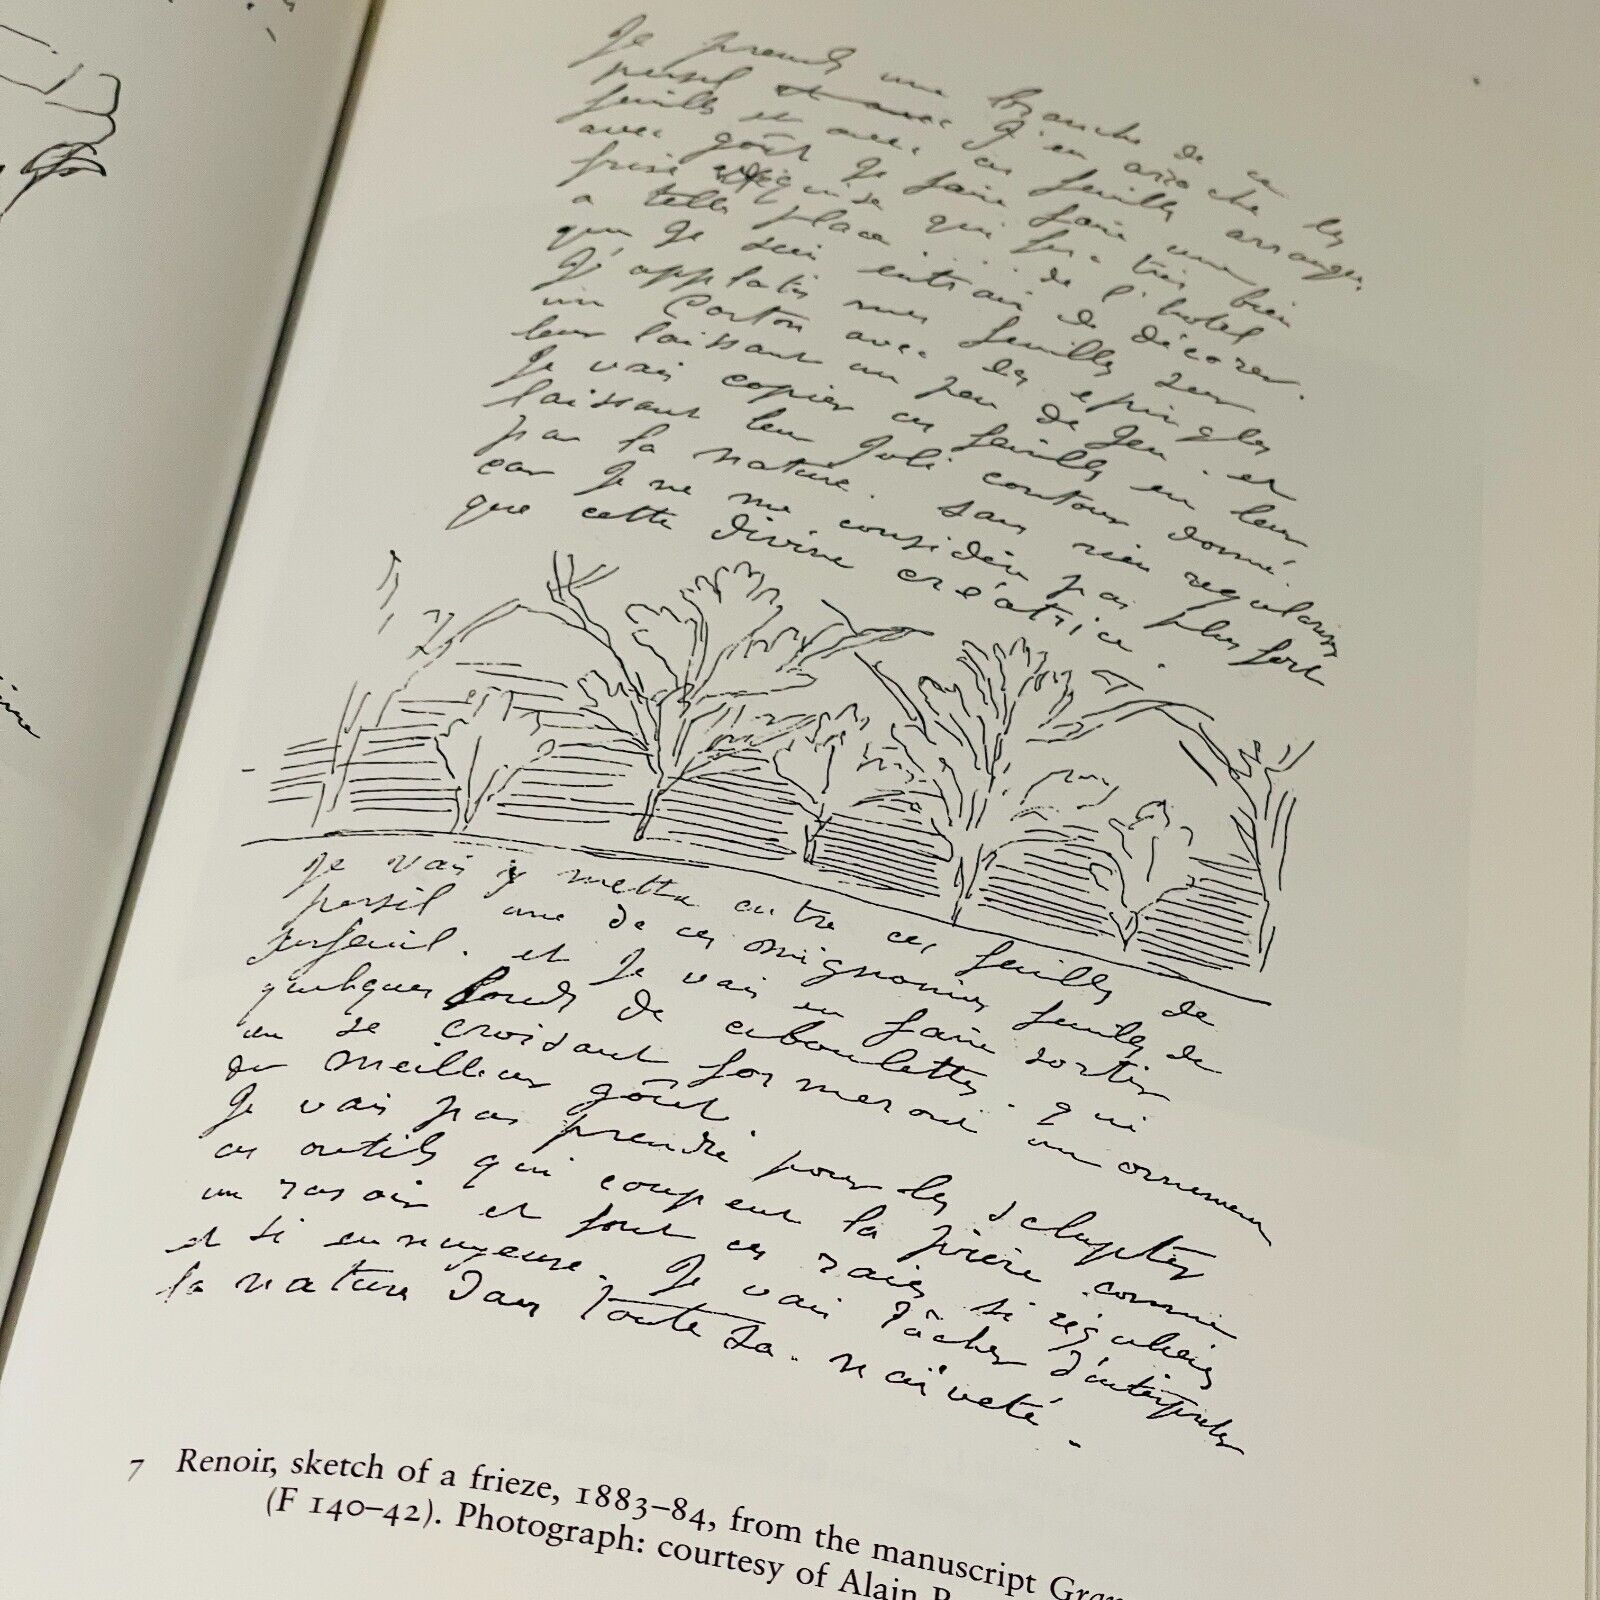 Je prends une branche de ce
persil J'en arrache les
feuilles et avec ces feuilles arranger
avec goût Je fairai faire une
frise exquise qui fera très bien
a telle place .... de l'hotel
que Je suis entrain de décorer.
J'applatis mes feuilles sur
un Carton avec des epingles
leur laissant un peu de Jeu. et
Je vais copier ces feuilles en leur
laissant leur Joli contour donné.
par la nature. Sans rien regulariser
car Je ne me considère pas plus fort
que cette divine créatrice.
Je vais y mettre entre ces feuilles de
persil une de ces mignonnes feuilles de
serfeuil. et Je vais en faire sortir
quelques fonds de ciboulettes. qui
en se croisant formeront un ornement
du meilleur goût.
Je vais pas prendre pour les sclupter
ces outils qui coupent la pierre comme
un rasoir et font ces raies si régulieres
et si ennuyeuse. Je vais tâcher d'interpreter
la nature dans toute sa. naïveté.
7 Renoir, sketch of a frieze, 1883–84, from the manuscript
(F 140–42). Photograph: courtesy of Alain